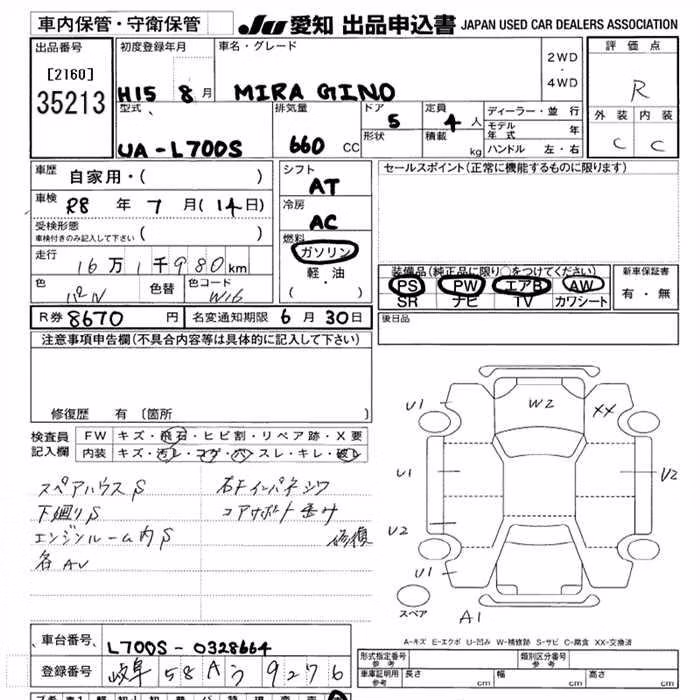 車内保管・守衛保管
JU 愛知 出品申込書 JAPAN USED CAR DEALERS ASSOCIATION
出品番号
[2160]
35213
初度登録年月
H15 8 月
車名・グレード
MIRA GINO
2WD
・
4WD
評価点
R
外装 内装
C C
型式
UA-L700S
排気量
660 CC
ドア
5
形状
定員
4 人
積載
kg
ディーラー・並行
モデル年式 年
ハンドル 左・右
車歴
自家用・( )
車検
R8 年 7 月(14日)
受検形態
車検付きのみ記入して下さい ( )
走行
16万1千980km
色
パール
色替
色コード
W16
シフト
AT
冷房
AC
燃料
ガソリン
軽・油
( ・ )
セールスポイント(正常に機能するものに限ります)
装備品(純正品に限り○をつけてください)
PS PW エアB AW
SR ナビ TV カワシート
新車保証書
有・無
R券 8670 円
名変通知期限 6 月 30日
後日品
注意事項申告欄(不具合内容等は具体的に記入して下さい)
修復歴 有 〔箇所 〕
検査員
記入欄
FW キズ・飛石・ヒビ割・リペア跡・X要
内装 キズ・汚レ・コゲ・穴・スレ・キレ・破レ
スペアハウスS
下廻りS
エンジンルーム内S
各AU
右Fインパネシワ
コアサポート歪み
修復
U1
W2
XX
U1
U2
U2
U1
A1
スペア
A-キズ E-エクボ U-凹み W-補修跡 S-サビ C-腐食 XX-交換済
車台番号
L700S-0328664
登録番号
岐阜 58 A う 9276
形式指定番号
参考
類別区分番号
参考
車庫証明用
参考
長さ cm
幅 cm
高さ cm